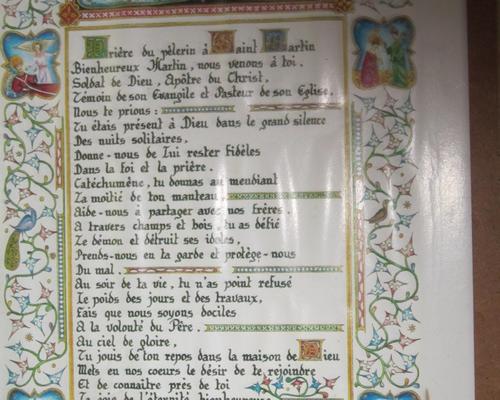 Prière du pèlerin à Saint Martin
Bienheureux Martin, nous venons à toi.
Soldat de Dieu, Apôtre du Christ,
Témoin de son Evangile et Pasteur de son Eglise,
Nous te prions :
Tu étais présent à Dieu dans le grand silence
Des nuits solitaires,
Donne-nous de Lui rester fidèles
Dans la foi et la prière.
Catéchumène, tu donnas au mendiant
La moitié de ton manteau,
Aide-nous à partager avec nos frères.
A travers champs et bois, tu as défié
Le démon et détruit ses idoles,
Prends-nous en ta garde et protège-nous
Du mal.
Au soir de ta vie, tu n'as point refusé
Le poids des jours et des travaux,
Fais que nous soyons dociles
A la volonté du Père.
Au ciel de gloire,
Tu jouis de ton repos dans la maison de Dieu
Mets en nos coeurs le désir de te rejoindre
Et de connaître près de toi
La joie de l'éternité bienheureuse